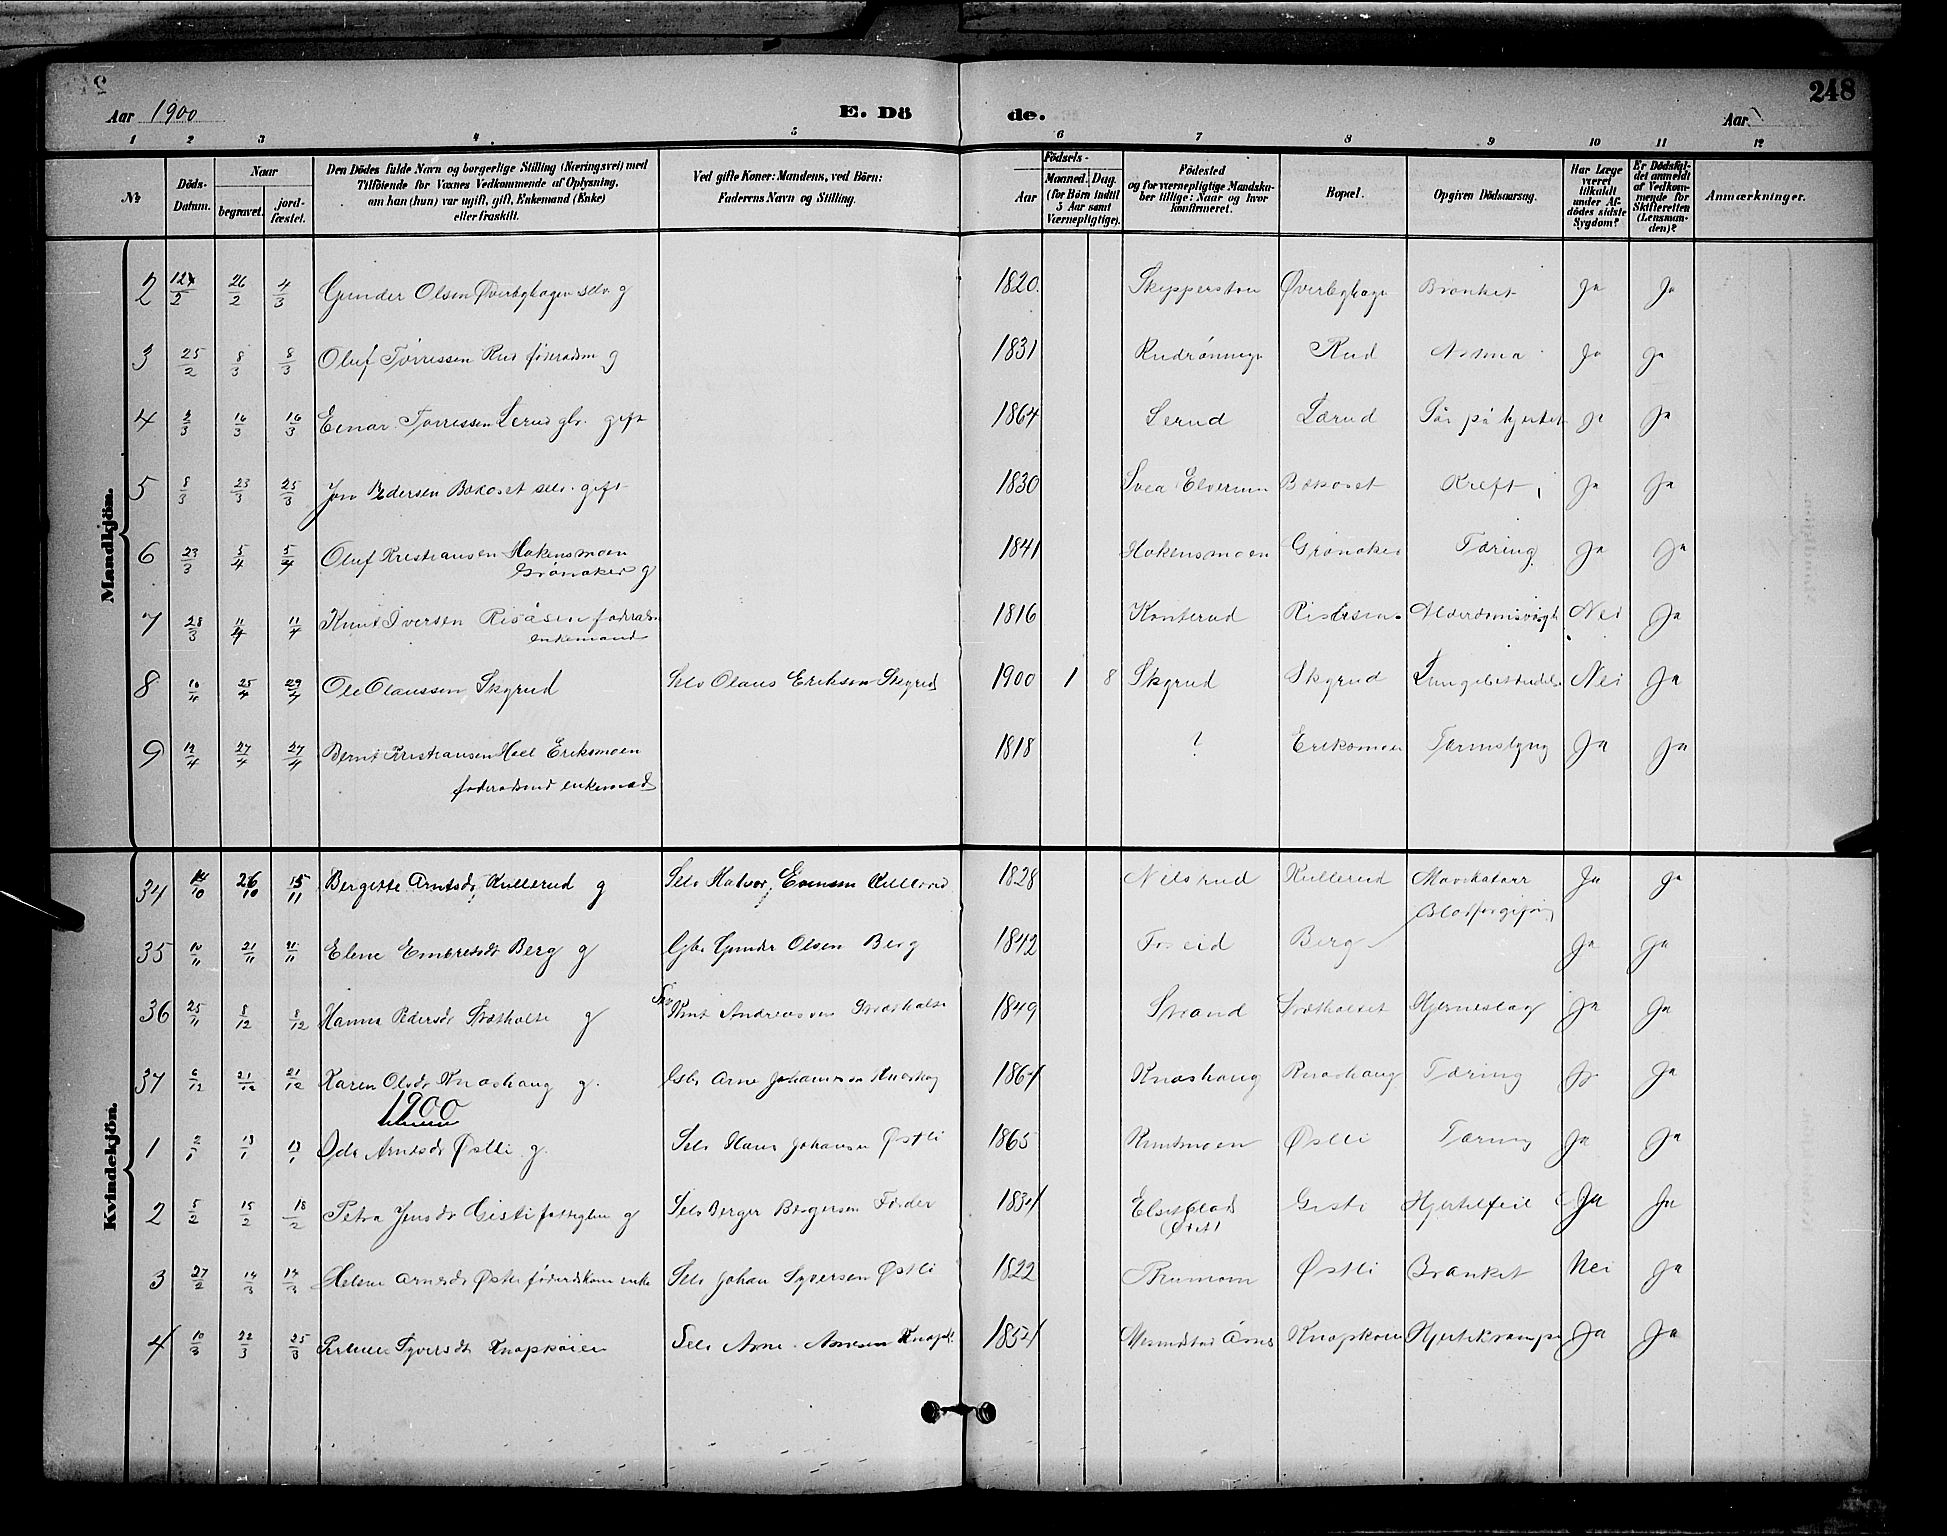 248
Aar 1900
E. Dö de.
Aar
1 2 3 4 5 6 7 8 9 10 11 12
№ Döds-Datum. Naar begravet. jord-fæstet. Den Dödes fulde Navn og borgerlige Stilling (Næringsvei) med Tilföiende for Voxnes Vedkommende af Oplysning, om han (hun) var ugift, gift, Enkemand (Enke) eller fraskilt. Ved gifte Koner: Mandens, ved Börn: Faderens Navn og Stilling. Födsels- Aar Maaned. Dag. (for Börn indtil 5 Aar samt Værnepligtige). Födested og for værnepligtige Mandskaber tillige: Naar og hvor konfirmeret. Bopæl. Opgiven Dödsaarsag. Har Læge været tilkaldt under Afdödes sidste Sygdom? Er Dödsfaldet anmeldt af Vedkommende for Skifteretten (Lensmanden)? Anmærkninger.
Mandkjön.
2 26/2 4/3 Gunder Olsen Øverbyhagen selv. g 1820 Skypperstøen Øverbyhage Bronket Ja Ja
3 25/2 8/3 8/3 Oluf Torressen Rud føderaadsm g 1831 Rud Astma Ja Ja
4 2/3 16/3 16/3 Einar Torressen Lerud gbr. gift 1864 Lerud Lærud Sår på hjertet Ja Ja
5 8/3 23/3 25/3 Jon Pedersen Bækoset selv. gift 1830 Svea Elverum Bækoset Kreft Ja Ja
6 23/3 5/4 5/4 Oluf Kristiansen Hakensmoen 1841 Hakensmoen Grønaker Tæring Ja Ja
Grønaker g
7 28/3 11/4 11/4 Knut Iversen Risåsen føderads. 1816 Konterud Risåsen Alderdomssvagh Nei Ja
enkemand
8 10/4 25/4 29/4 Ole Olaussen Skyrud Selv Olaus Eriksen Skyrud 1900 1 8 Skyrud Skyrud Lungebetændelse Nei Ja
9 12/4 27/4 27/4 Bernt Kristiansen Hoel Eriksmoen 1818 ? Eriksmoen Tarmslyng Ja Ja
føderadsmd enkemad
Kvindekjön.
34 14/10 26/10 15/11 Bergitte Arntsdr Kullerud g Selv Halvor Evensen Kullerud 1828 Nilsrud Kullerud Mavekatarr Ja Ja
Blodforgiftn
35 10/11 21/11 21/11 Elene Embretsdr Berg g Gbr Gunder Olsen Berg 1842 Foseid Berg Ja Ja
36 25/11 8/12 8/12 Hanna Pedersdr Svætholte g Knut Andreassen Svætholte 1849 Strand Svætholtet Hjerneslag Ja Ja
37 6/12 21/12 21/12 Karen Olsdr Knashaug g. Gbr Arne Johannesen Knashaug 1864 Knashaug Knashaug Tæring Ja Ja
1900
1 2/1 13/1 13/1 Oda Arntsdr Østli g. Selv Hans Johansen Østli 1865 Knutsmoen Østli Tæring Ja Ja
2 5/2 15/2 18/2 Petra Jensdr Gisti fattiglem g Selv Berger Bergersen 1834 Gisti Hjertefeil Ja Ja
3 27/2 14/3 14/3 Helene Arnesdr Østli føderådskone enke Selv Johan Syversen Østli 1822 Brumoen Østli Bronket Nei Ja
4 10/3 22/3 25/3 Syversdr Knapkøien Selv Arne Arnesen Knapk. 1854 Årnes Knapkøien Hjertekrampe Ja Ja